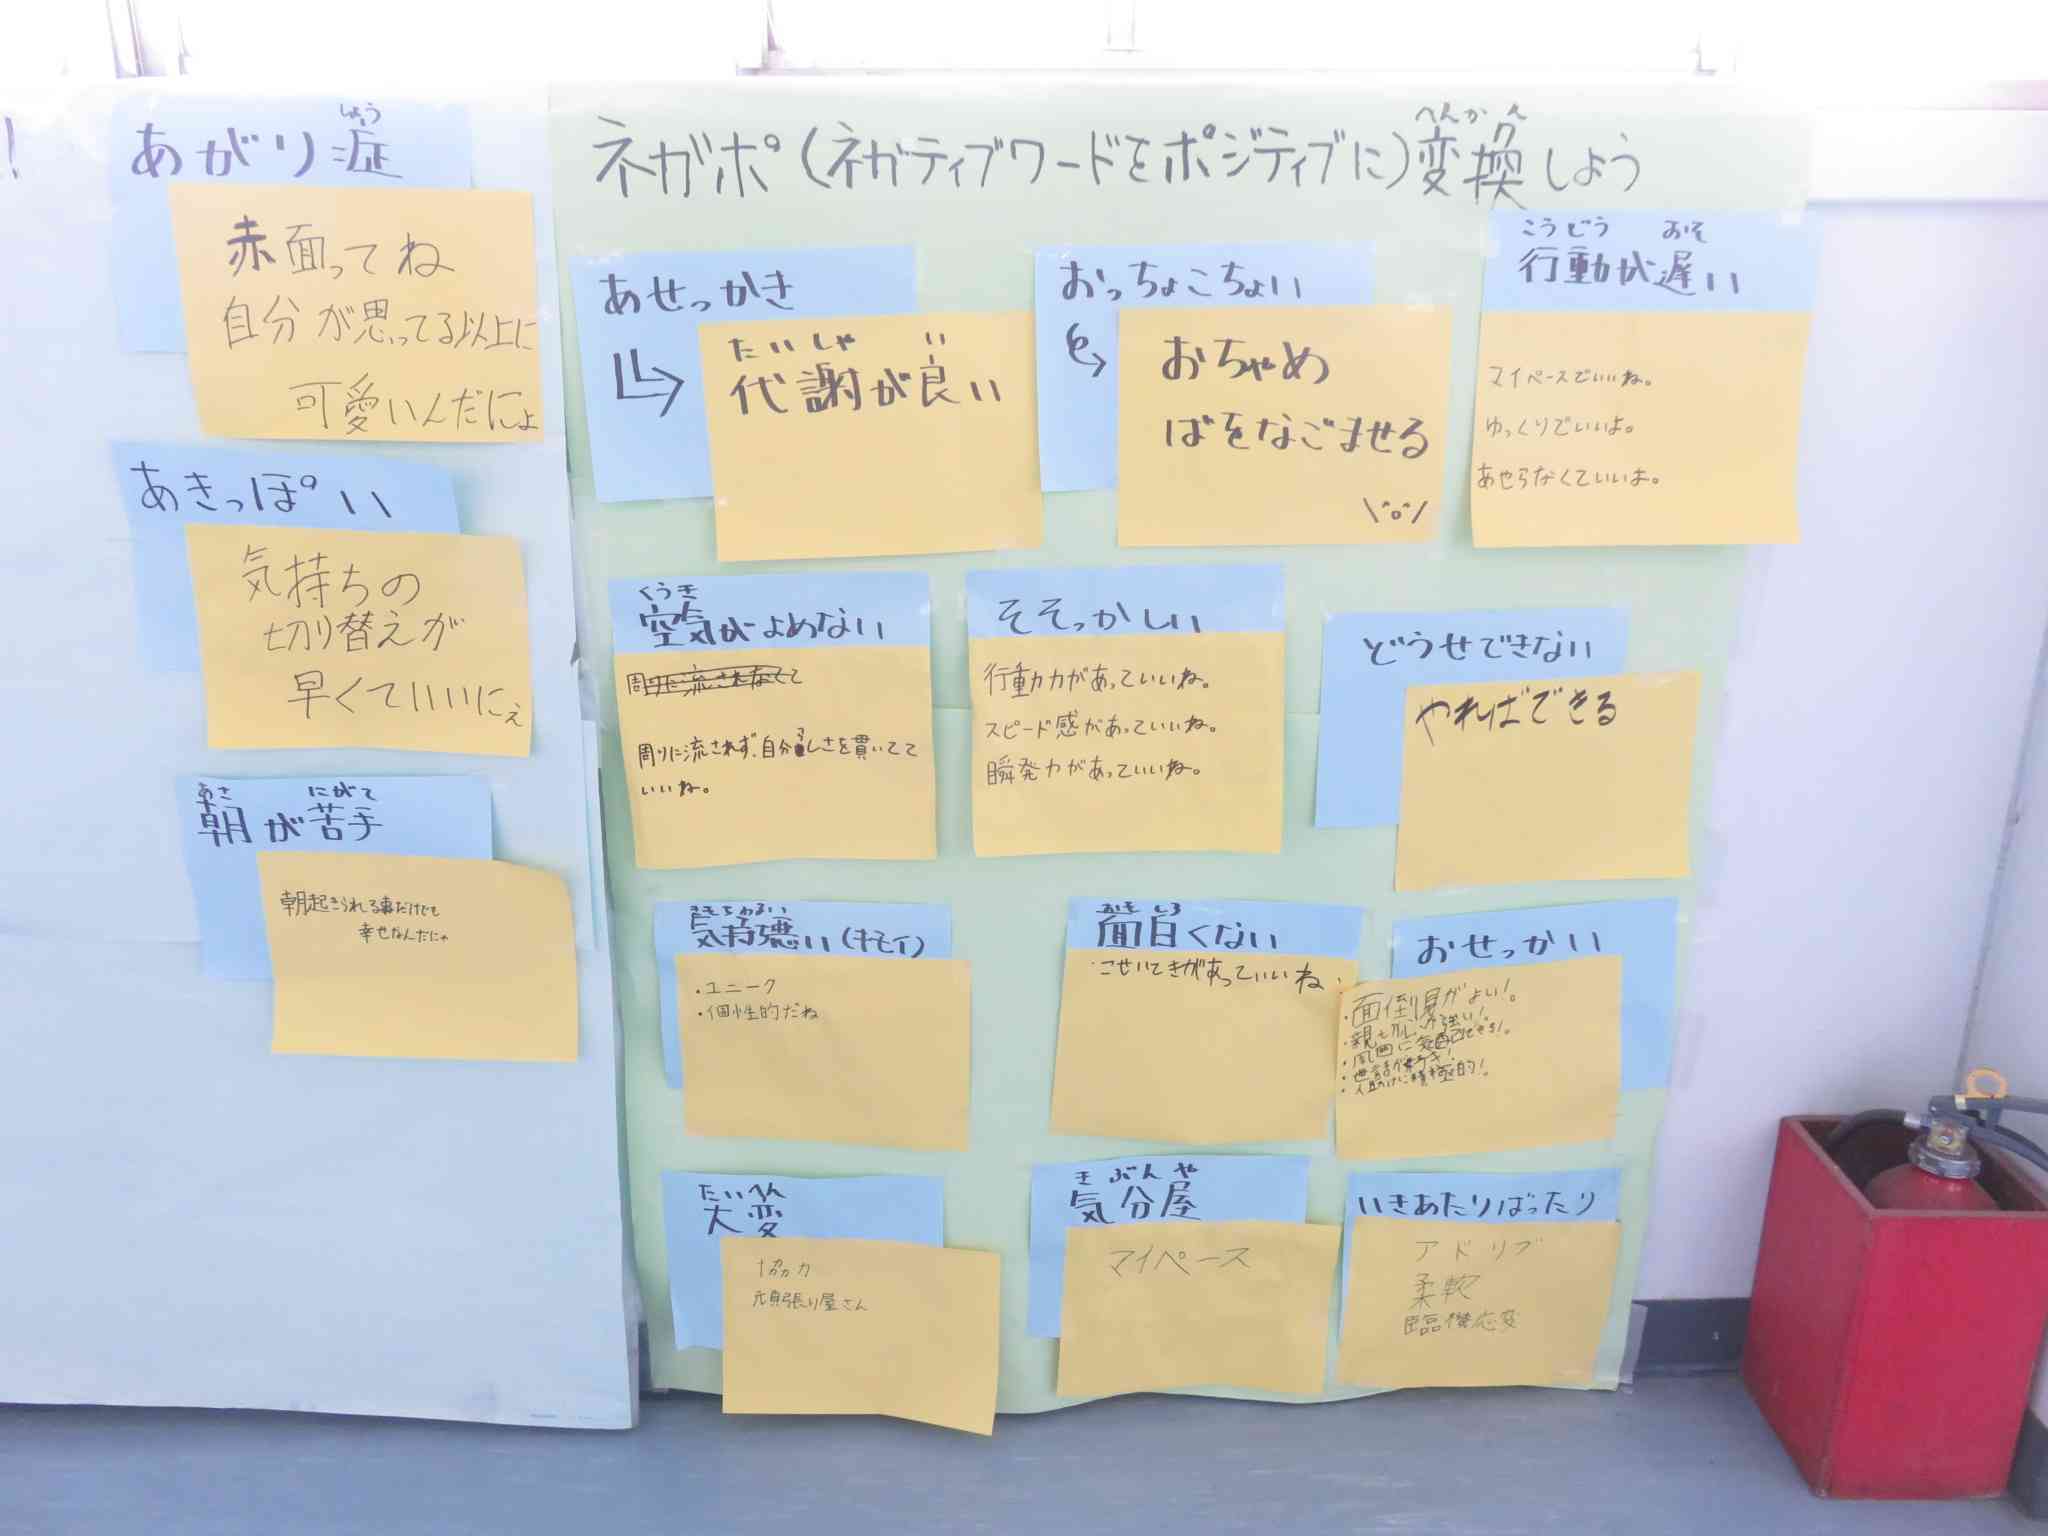 ！
しょう
あがり症
赤面ってね
自分が思ってる以上に
可愛いんだにょ
あきっぽい
気持ちの
切り替えが
早くていいにぇ
あさ にがて
朝が苦手
朝起きられる事だけでも
幸せなんだにゃ
へんかん
ネガポ(ネガティブワードをポジティブに)変換しよう
あせっかき
たいしゃ い
代謝が良い
おっちょこちょい
おちゃめ
ばをなごませる
\^o^/
こうどう おそ
行動が遅い
マイペースでいいね。
ゆっくりでいいよ。
あせらなくていいよ。
くうき
空気がよめない
周りに流されなくて
周りに流されず、自分らしさを貫いてて
いいね。
そそっかしい
行動力があっていいね。
スピード感があっていいね。
瞬発力があっていいね。
どうせできない
やればできる
きもちわるい
気持悪い(キモイ)
・ユニーク
・個性的だね
おも しろ
面白くない
・こせいてきがあっていいね・
おせっかい
・面倒見がよい!。
・親切心が強い!。
・周囲に気配りできる!。
・世話好き!
・人助けに積極的!。
たいへん
大変
協力
頑張り屋さん
き ぶん や
気分屋
マイペース
いきあたりばったり
アドリブ
柔軟
臨機応変